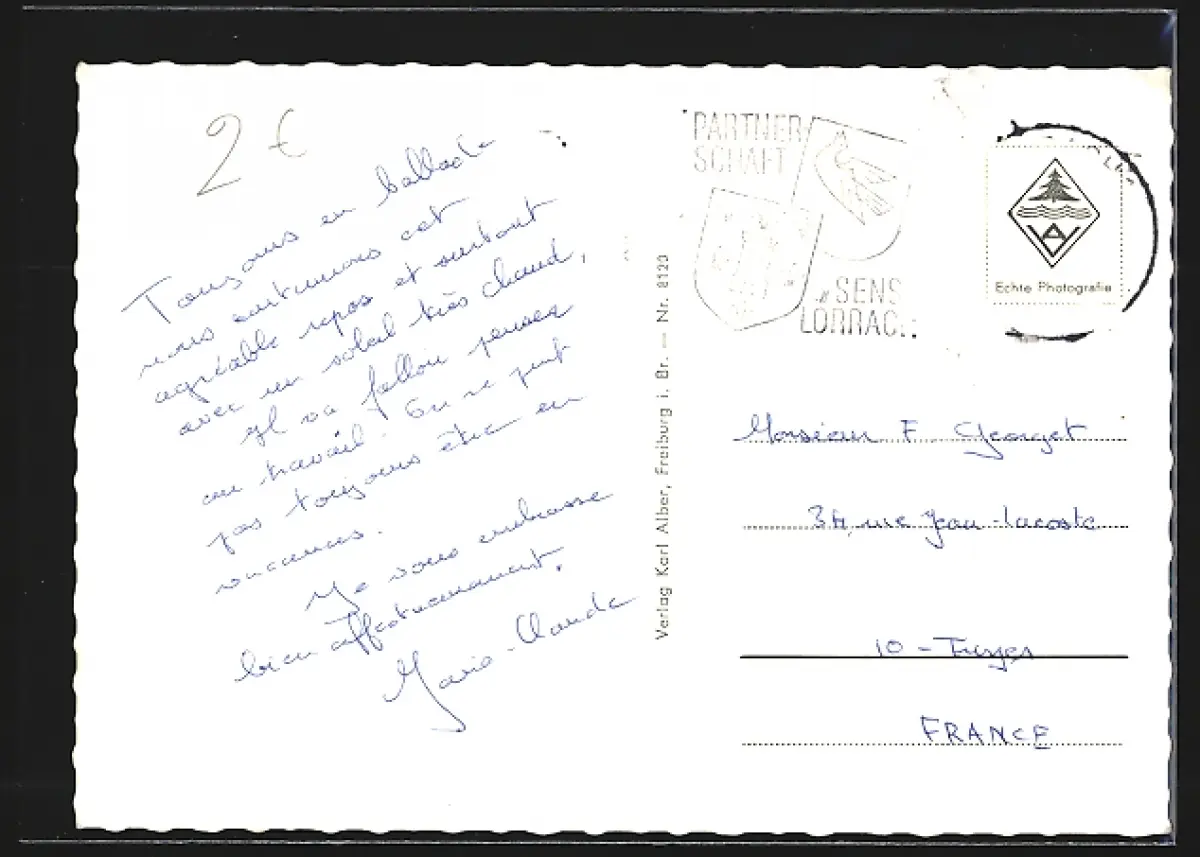 2 €
Toujours en ballade
nous continuons cet
agréable repos et surtout
avec un soleil très chaud,
Il va falloir penser
au travail. On ne peut
pas toujours être en
vacances.
Je vous embrasse
bien affectueusement.
Marie-Claude
Verlag Karl Alber, Freiburg i. Br. — Nr. 8120
PARTNER
SCHAFT
SENS
LÖRRACH
Echte Photografie
Monsieur F. Georget
34, rue Jean-Lacoste
10 - Troyes
FRANCE